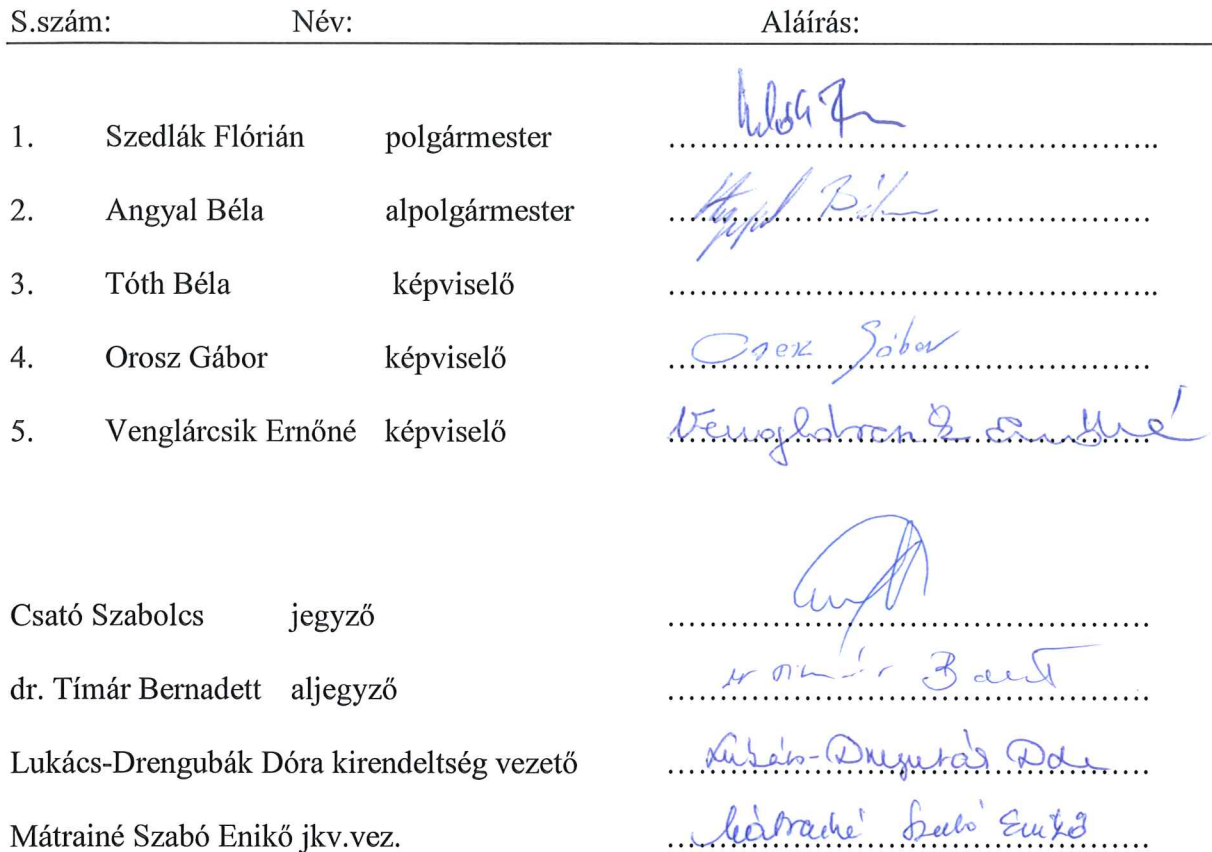 S.szám: Név: Aláírás:
1. Szedlák Flórián polgármester ..........
2. Angyal Béla alpolgármester .......... Béla
3. Tóth Béla képviselő ..........
4. Orosz Gábor képviselő .......... Orosz Gábor
5. Venglárcsik Ernőné képviselő .......... Venglárcsik Ernőné
Csató Szabolcs jegyző ..........
dr. Tímár Bernadett aljegyző ..........
Lukács-Drengubák Dóra kirendeltség vezető .......... Lukács-Drengubák Dóra
Mátrainé Szabó Enikő jkv.vez. .......... Mátrainé Szabó Enikő